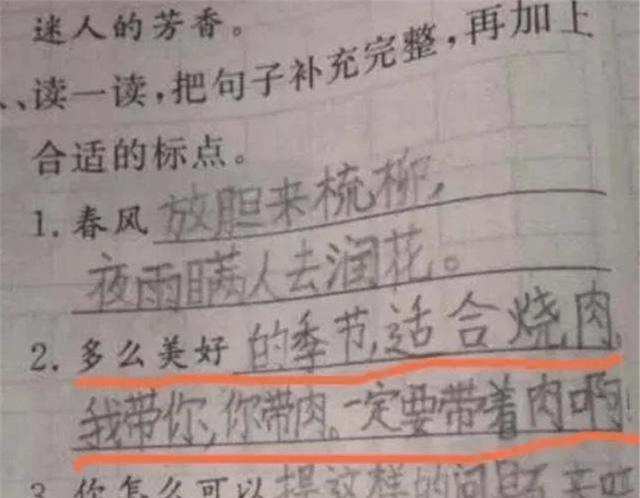 迷人的芳香。
、读一读,把句子补充完整,再加上
合适的标点。
1. 春风 放胆来梳柳,
夜雨瞒人去润花。
2. 多么美好 的季节,适合烧肉,
我带你,你带肉。一定要带着肉啊!
3 你怎么可以 提这样的问